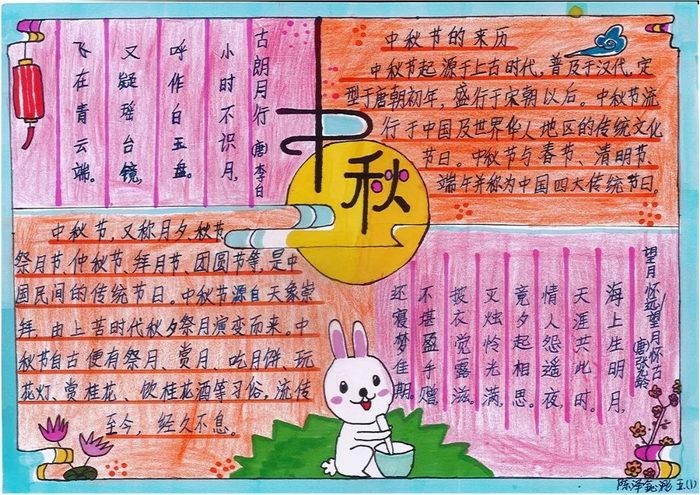 中秋
古朗月行 唐 李白
小时不识月,
呼作白玉盘。
又疑瑶台镜,
飞在青云端。
中秋节的来历
中秋节起源于上古时代,普及于汉代,定
型于唐朝初年,盛行于宋朝以后。中秋节流
行于中国及世界华人地区的传统文化
节日。中秋节与春节、清明节、
端午并称为中国四大传统节日。
中秋节,又称月夕、秋节
祭月节、仲秋节、拜月节、团圆节等,是中
国民间的传统节日。中秋节源自天象崇
拜,由上苦时代秋夕祭月演变而来。中
秋节自古便有祭月、赏月、吃月饼、玩
花灯、赏桂花、饮桂花酒等习俗,流传
至今,经久不息。
望月怀远/望月怀古
唐 张九龄
海上生明月,
天涯共此时。
情人怨遥夜,
竟夕起相思。
灭烛怜光满,
披衣觉露滋。
不堪盈手赠,
还寝梦佳期。
陈泽 五(1)